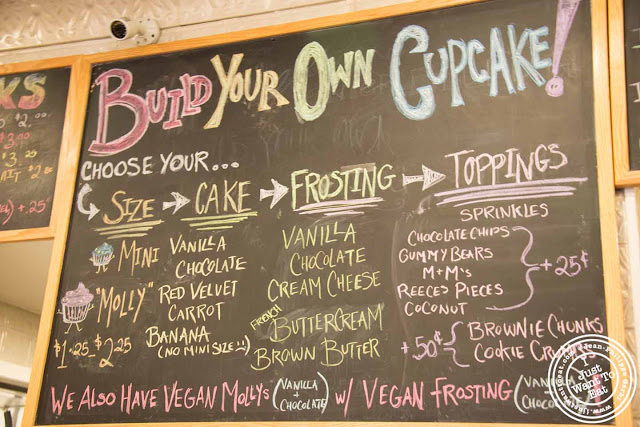 BUILD YOUR OWN CUPCAKE!
CHOOSE YOUR...
SIZE
CAKE
FROSTING
TOPPINGS
MINI
"MOLLY"
$1.25 $2.25
VANILLA
CHOCOLATE
RED VELVET
CARROT
BANANA
(NO MINI SIZE!!)
VANILLA
CHOCOLATE
CREAM CHEESE
FRENCH BUTTERCREAM
BROWN BUTTER
SPRINKLES
CHOCOLATE CHIPS
GUMMY BEARS
M+M'S
REECES PIECES
COCONUT
+25¢
+50¢
BROWNIE CHUNKS
COOKIE
WE ALSO HAVE VEGAN MOLLYS (VANILLA + CHOCOLATE) W/ VEGAN FROSTING (VANILLA
KS
$2.
3.00
$3.25
$2.
+.25¢
Just
Want To
Eat